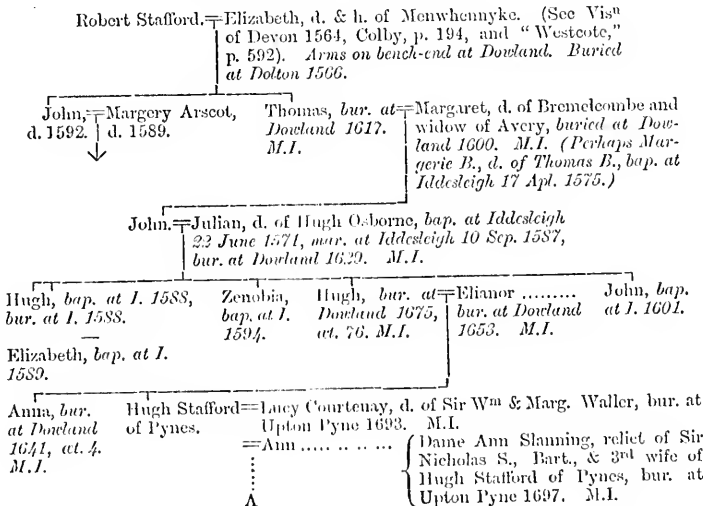 Robert Stafford.=Elizabeth, d. & h. of Menwhennyke. (See Visn
of Devon 1564, Colby, p. 194, and "Westcote,"
p. 592). Arms on bench-end at Dowland. Buried
at Dolton 1566.
John,=Margery Arscot,
d. 1592. d. 1589.
Thomas, bur. at=Margaret, d. of Bremelcombe and
Dowland 1617.
M.I.
widow of Avery, buried at Dow-
land 1600. M.I. (Perhaps Mar-
gerie B., d. of Thomas B., bap. at
Iddesleigh 17 Apl. 1575.)
John.=Julian, d. of Hugh Osborne, bap. at Iddesleigh
22 June 1571, mar. at Iddesleigh 10 Sep. 1587,
bur. at Dowland 1629. M.I.
Hugh, bap. at I. 1588,
bur. at I. 1588.
Elizabeth, bap. at I.
1589.
Zenobia,
bap. at I.
1594.
Hugh, bur. at=Elianor .........
Dowland 1675,
æt. 76. M.I.
bur. at Dowland
1653. M.I.
John, bap.
at I. 1601.
Anna, bur.
at Dowland
1641, æt. 4.
M.I.
Hugh Stafford=Lucy Courtenay, d. of Sir Wm & Marg. Waller, bur. at
of Pynes.
Upton Pyne 1693. M.I.
=Ann .............
Dame Ann Slanning, relict of Sir
Nicholas S., Bart., & 3rd wife of
Hugh Stafford of Pynes, bur. at
Upton Pyne 1697. M.I.